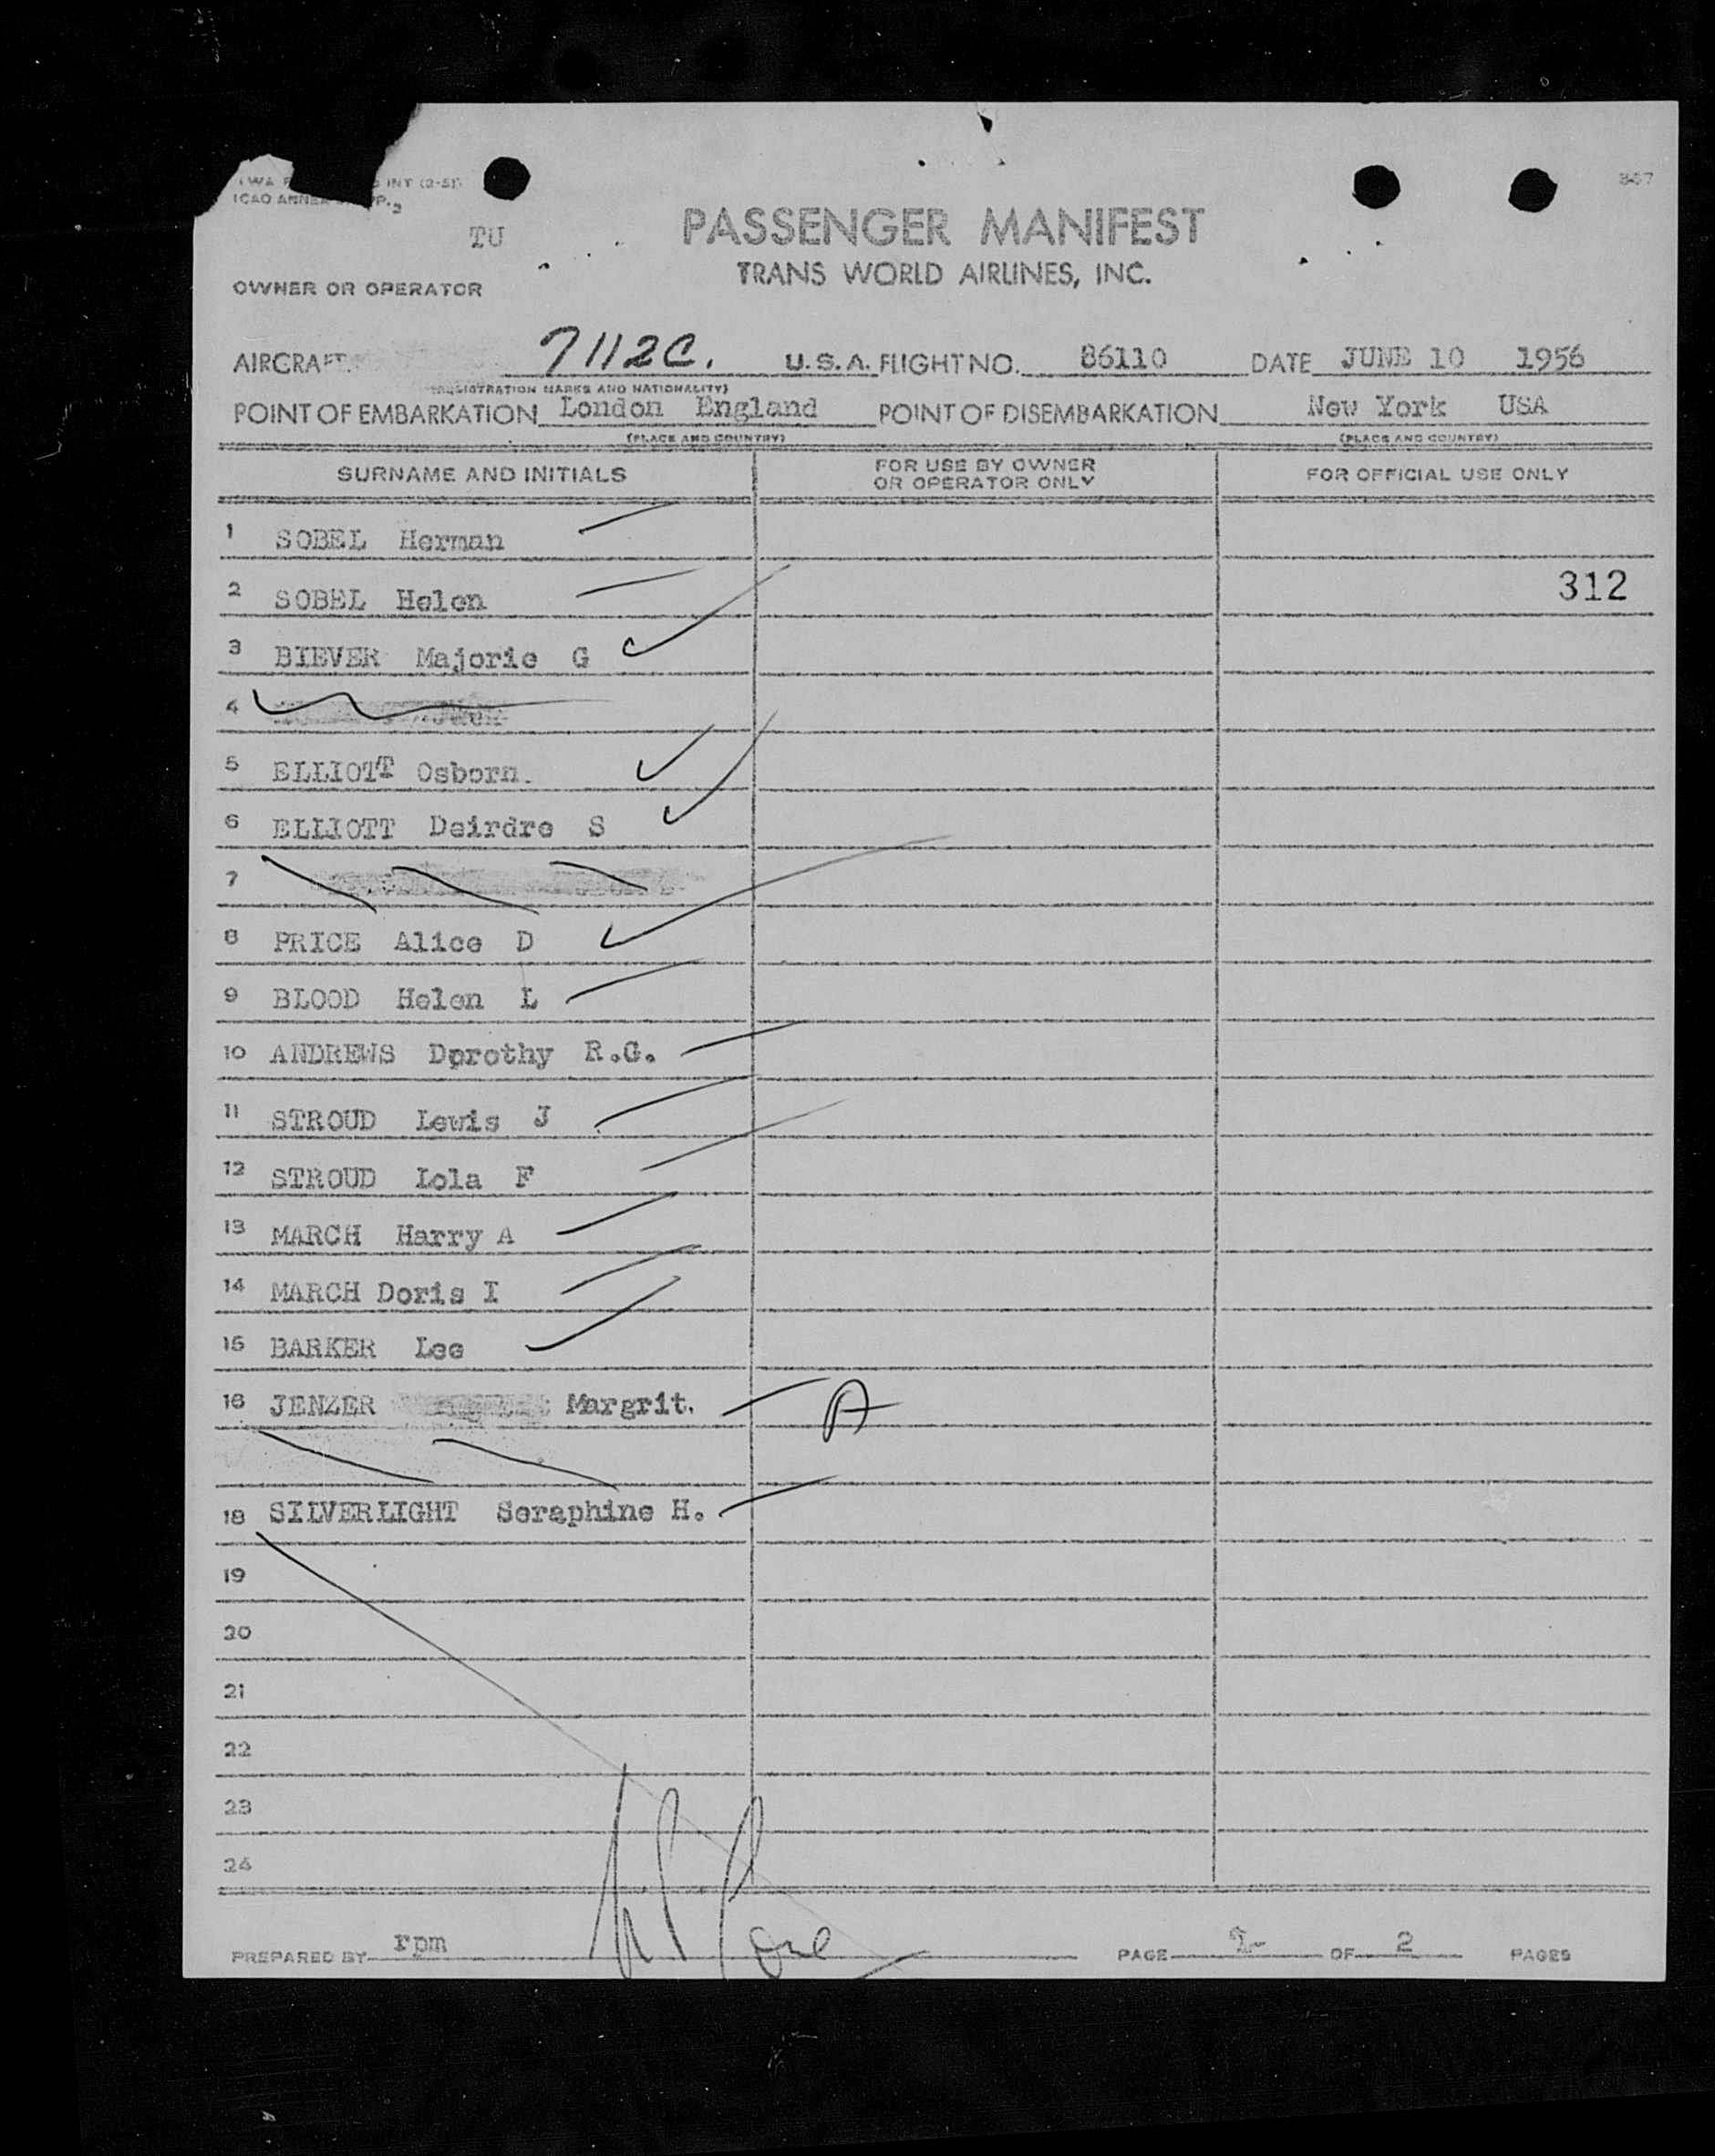 INT (2-51)
ICAO ANNEX
TU
PASSENGER MANIFEST
TRANS WORLD AIRLINES, INC.
OWNER OR OPERATOR
AIRCRAFT 7112C. U.S.A. FLIGHT NO. 86110 DATE JUNE 10 1956
(REGISTRATION MARKS AND NATIONALITY)
POINT OF EMBARKATION London England POINT OF DISEMBARKATION New York USA
(PLACE AND COUNTRY) (PLACE AND COUNTRY)
SURNAME AND INITIALS FOR USE BY OWNER OR OPERATOR ONLY FOR OFFICIAL USE ONLY
1 SOBEL Herman
2 SOBEL Helen 312
3 BIEVER Majorie G
4
5 ELLIOTT Osborn.
6 ELLIOTT Deirdre S
7
8 PRICE Alice D
9 BLOOD Helen L
10 ANDREWS Dorothy R.G.
11 STROUD Lewis J
12 STROUD Lola F
13 MARCH Harry A
14 MARCH Doris I
15 BARKER Lee
16 JENZER Margrit. A
18 SILVERLIGHT Seraphine H.
19
20
21
22
23
24
PREPARED BY rpm PAGE 2 OF 2 PAGES